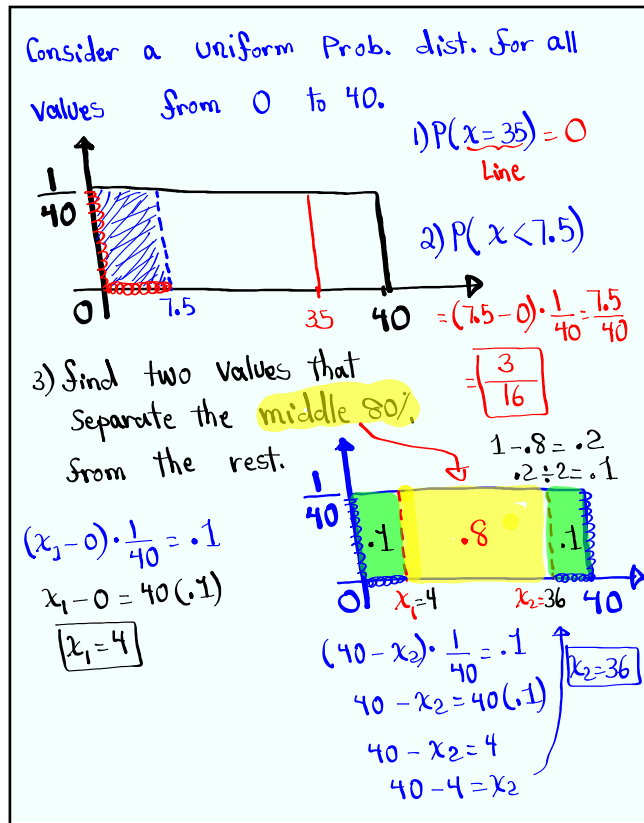 Consider a uniform Prob. dist. for all
values from 0 to 40.
1) P(x=35) = 0
Line
1/40
0 7.5 35 40
2) P(x<7.5)
= (7.5-0)·1/40 = 7.5/40
= 3/16
3) find two values that
Separate the middle 80%
from the rest.
1-.8=.2
.2÷2=.1
1/40
.1 .8 .1
0 x₁=4 x₂=36 40
(x₁-0)·1/40=.1
x₁-0=40(.1)
x₁=4
(40-x₂)·1/40=.1
40-x₂=40(.1)
40-x₂=4
40-4=x₂
x₂=36